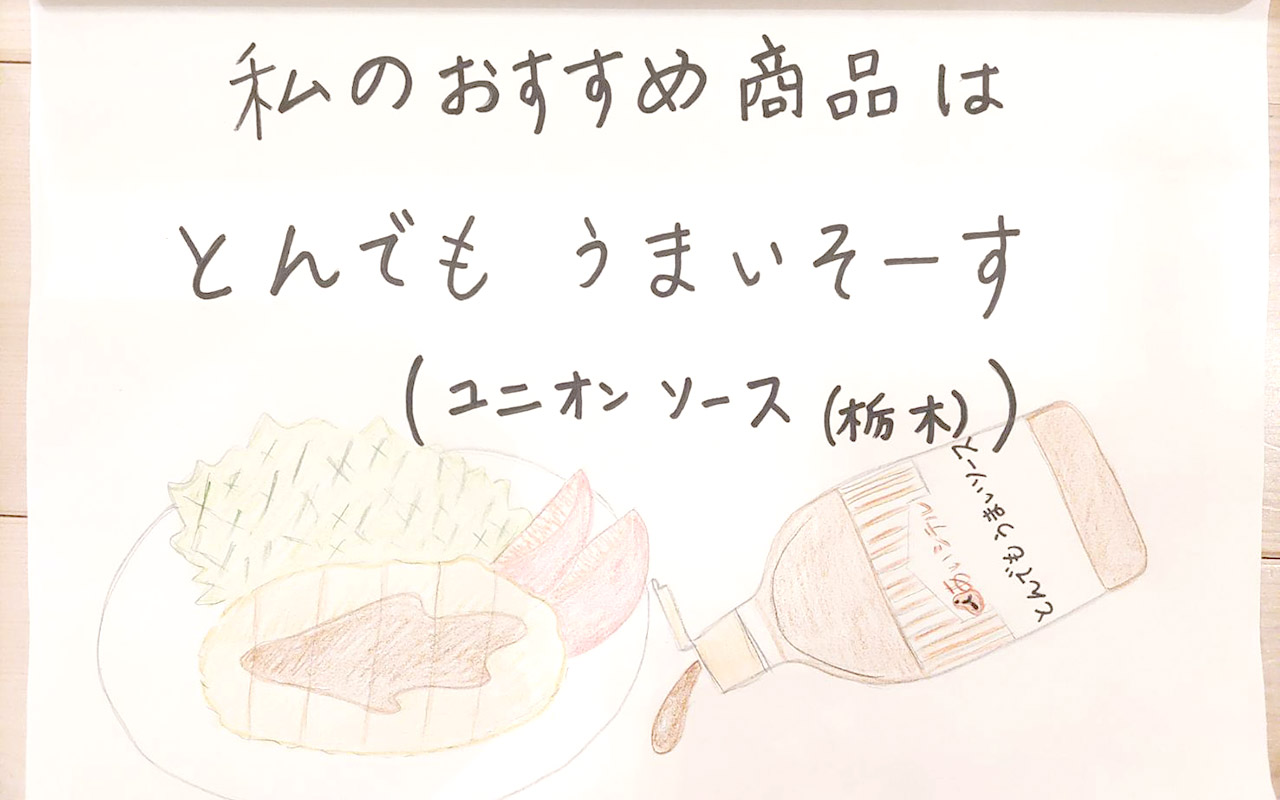 私のおすすめ商品は
とんでも うまいそーす
(ユニオン ソース (栃木))
とんでもうまいソース